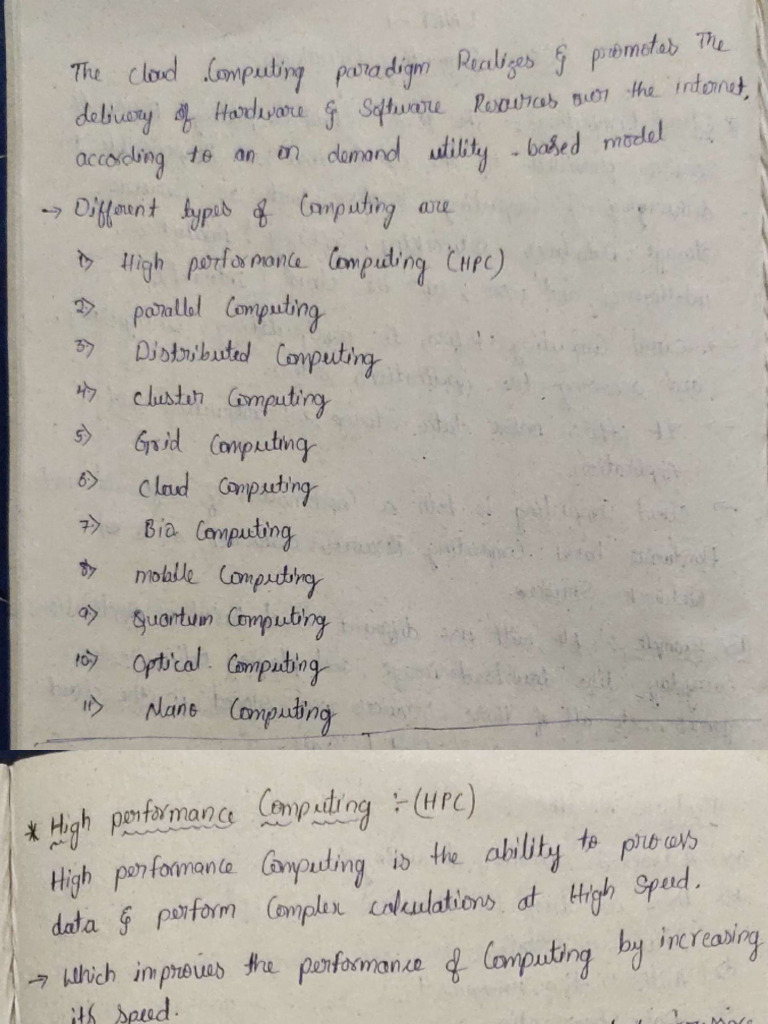 The cloud Computing paradigm Realizes & promotes The
delivery of Hardware & Software Resources over the internet,
according to an on demand utility - based model
→ Different types of Computing are
1) High performance Computing (HPC)
2) parallel Computing
3) Distributed Computing
4) cluster Computing
5) Grid Computing
6) Cloud Computing
7) Bio Computing
8) mobile Computing
9) Quantum Computing
10) Optical Computing
11) Nano Computing
* High performance Computing :- (HPC)
High performance Computing is the ability to process
data & perform Complex calculations at High Speed.
→ Which improves the performance of Computing by increasing
its speed.